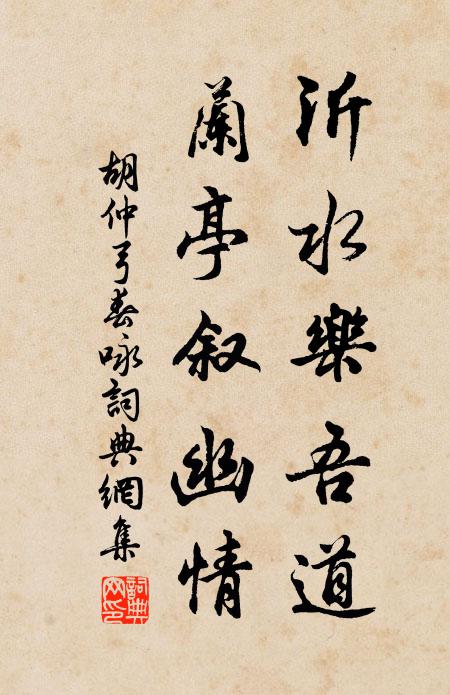 沂水樂吾道
蘭亭叙幽情
胡仲弓春咏詞典網集
詞典网印